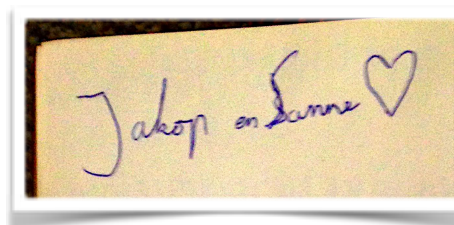 Jakop en Sanne